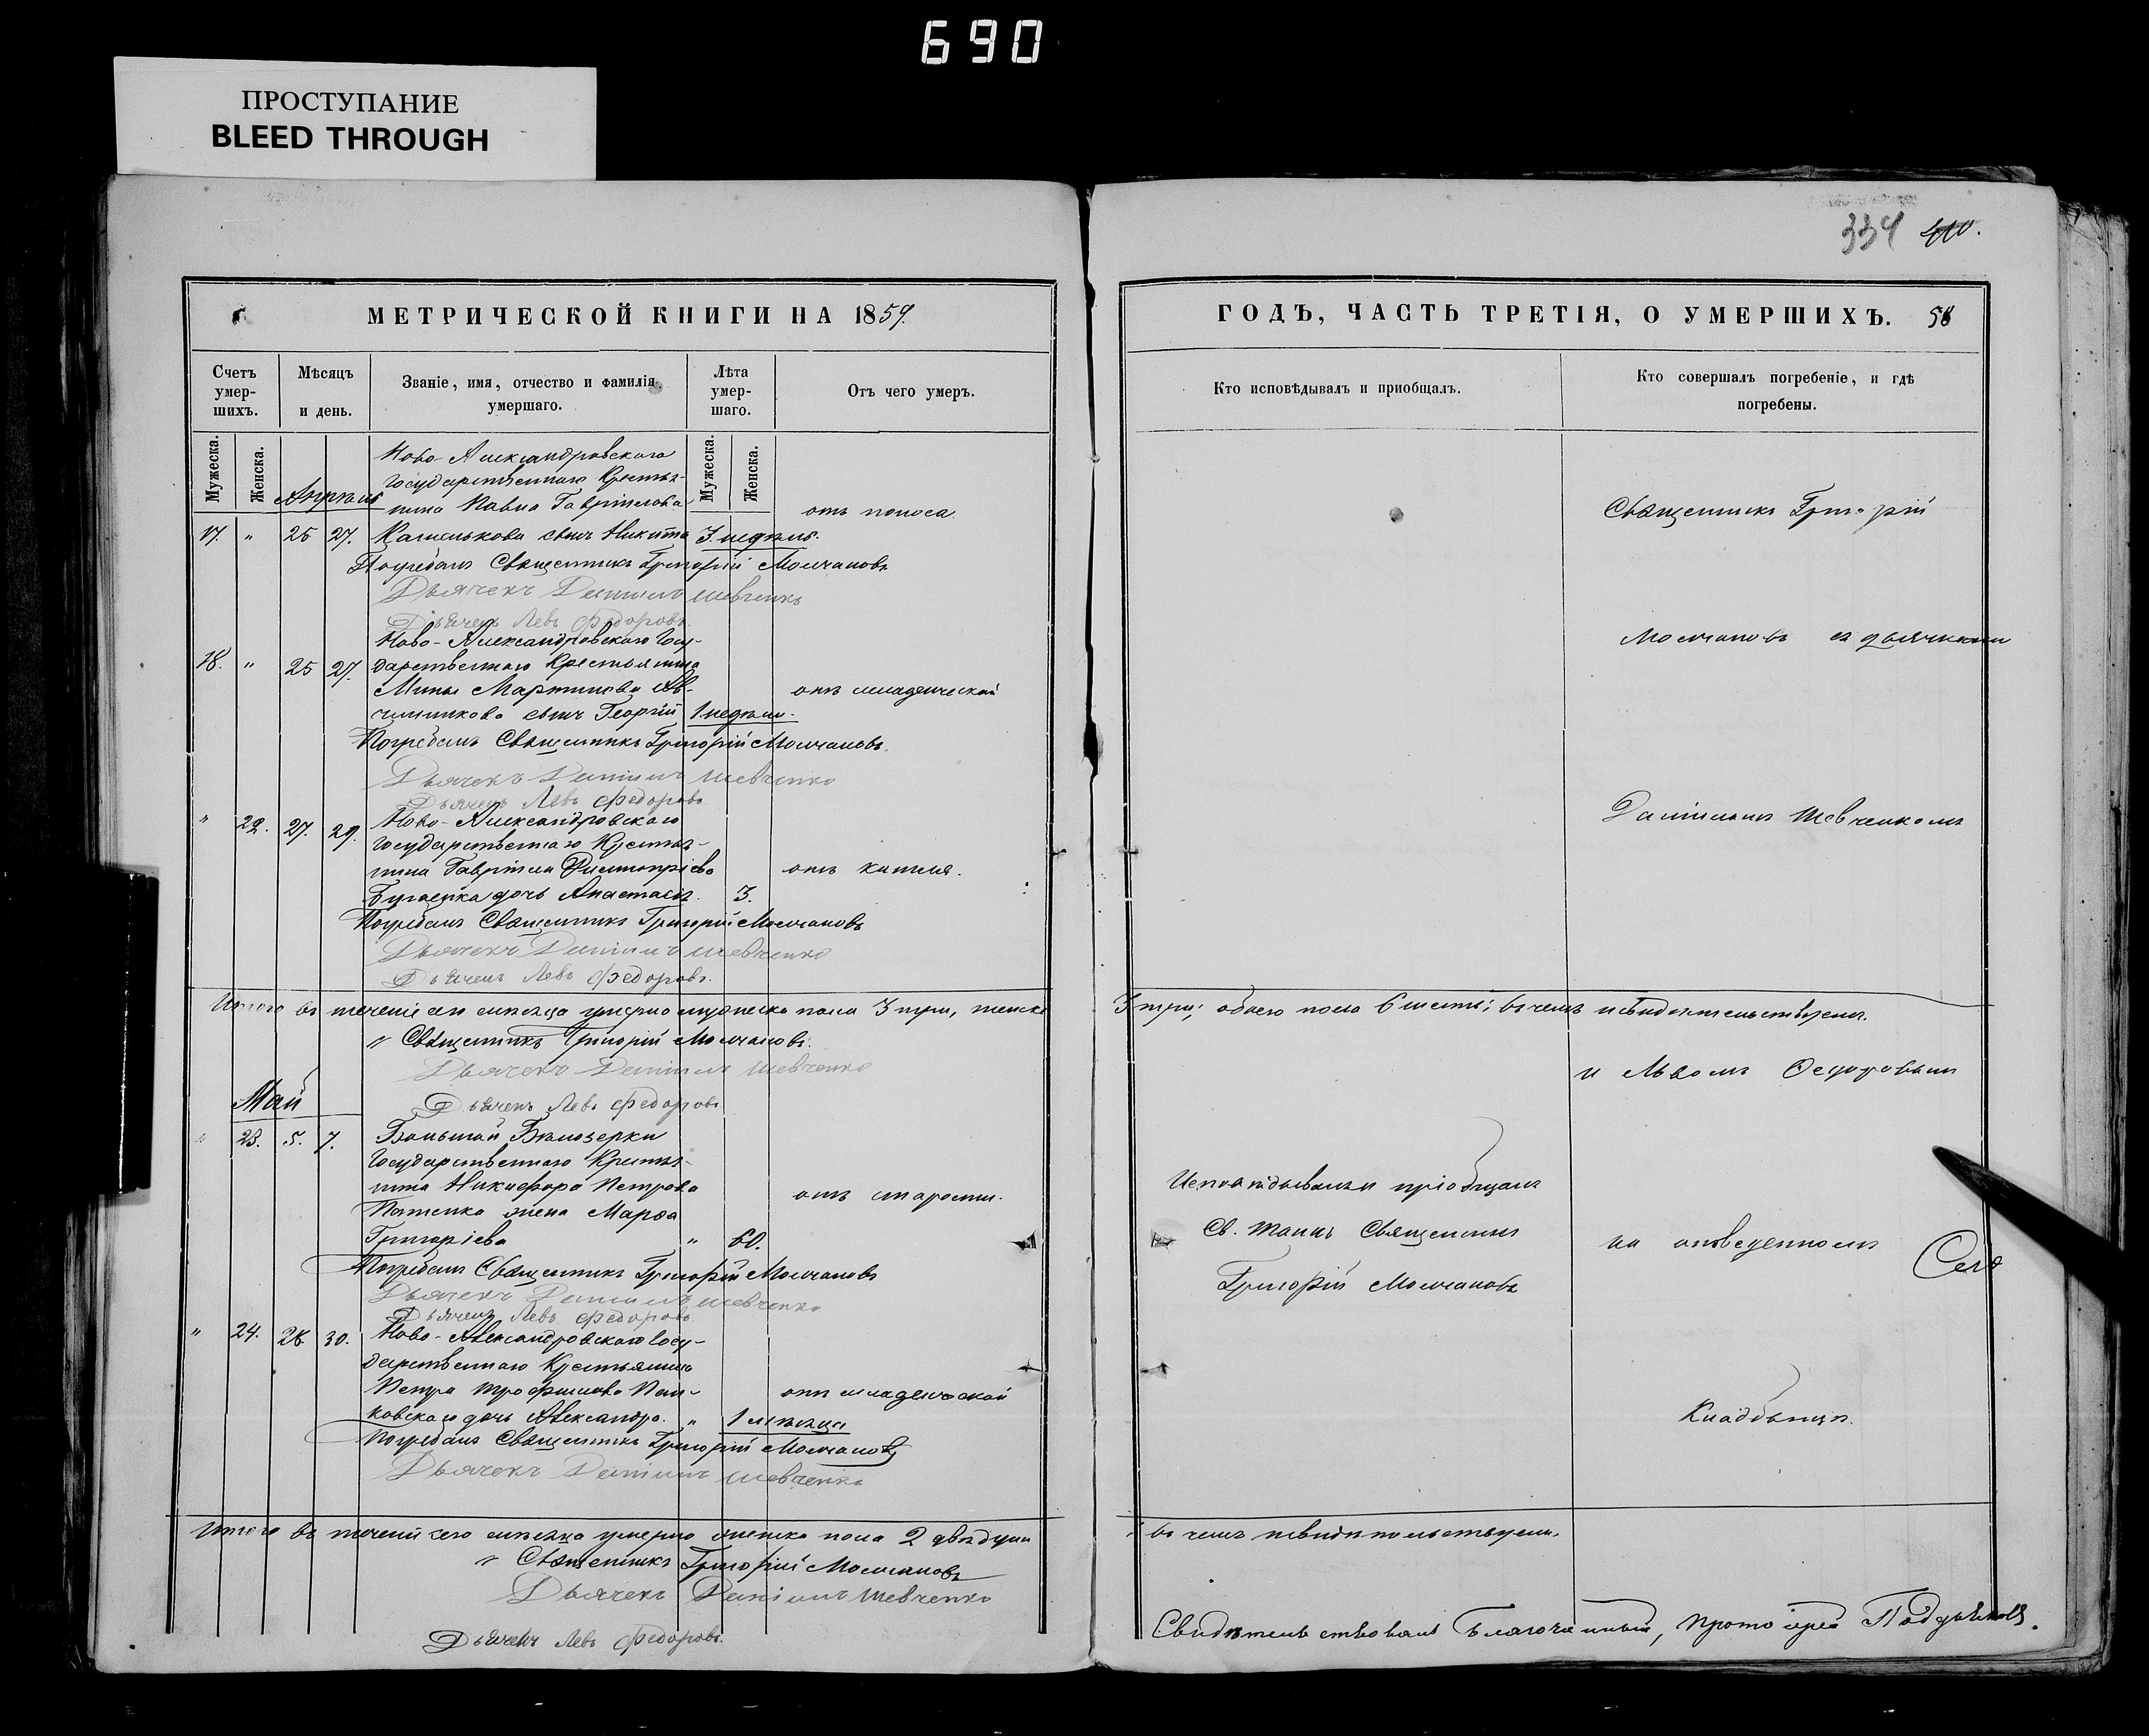 690
ПРОСТУПАНИЕ
BLEED THROUGH
334
МЕТРИЧЕСКОЙ КНИГИ НА 1859.
Счетъ умер-шихъ.
Мѣсяцъ и день.
Званіе, имя, отчество и фамилія умершаго.
Лѣта умер-шаго.
Отъ чего умеръ.
Мужеска.
Женска.
Мужеска.
Женска.
Апрѣль
Ново-Александровскаго
Государственнаго Крестья-
нина Павла Гавріилова
17. " 25 27. сынъ Никита 3 недѣль. отъ поноса
Погребалъ Священникъ Григорій Молчановъ
Дьячекъ Даніилъ Шевченко
Дьячекъ Левъ Федоровъ.
Ново-Александровскаго Госу-
18. " 25 27. дарственнаго Крестьянина
Мины Мартинова Ов-
чинникова сынъ Георгій 1 недѣли. отъ младенческой
Погребалъ Священникъ Григорій Молчановъ.
Дьячекъ Даніилъ Шевченко
Дьячекъ Левъ Федоровъ
" 22. 27. 29. Ново-Александровскаго
Государственнаго Крестья-
нина Гавріила Димитріева отъ кашля.
дочь Анастасія 3.
Погребалъ Священникъ Григорій Молчановъ
Дьячекъ Даніилъ Шевченко
Дьячекъ Левъ Федоровъ.
Итого въ теченіи сего мѣсяца умерло мужеска пола 3 три, женска
" Священникъ Григорій Молчановъ.
Дьячекъ Даніилъ Шевченко
Дьячекъ Левъ Федоровъ
Май
" 23. 5. 7. Большой Бѣлозерки
Государственнаго Крестья-
нина Никифора Петрова
жена Марѳа отъ старости.
Григоріева " 60.
Погребалъ Священникъ Григорій Молчановъ
Дьячекъ Даніилъ Шевченко
Дьячекъ Левъ Федоровъ
" 24. 28 30. Ново-Александровскаго Госу-
дарственнаго Крестьянина
Петра Трофимова Пан-
ковскаго дочь Александра. " 1 мѣсяца отъ младенческой
Погребалъ Священникъ Григорій Молчановъ
Дьячекъ Даніилъ Шевченко
Итого въ теченіи сего мѣсяца умерло женска пола 2 двѣ души
" Священникъ Григорій Молчановъ
Дьячекъ Даніилъ Шевченко
Дьячекъ Левъ Федоровъ.
ГОДЪ, ЧАСТЬ ТРЕТІЯ, О УМЕРШИХЪ. 58
Кто исповѣдывалъ и приобщалъ.
Кто совершалъ погребеніе, и гдѣ погребены.
Священникъ Григорій
Молчановъ съ дьячками
Даніиломъ Шевченкомъ
3 три; обоего пола 6 шесть; въ чемъ и свидѣтельствуемъ.
и Львомъ Ѳедоровымъ
Исповѣдывалъ и пріобщалъ
Св. Таинъ Священникъ
Григорій Молчановъ
на отведенномъ
Кладбищѣ.
въ чемъ и свидѣтельствуемъ.
Свидѣтельствовалъ Благочинный, Протоіерей